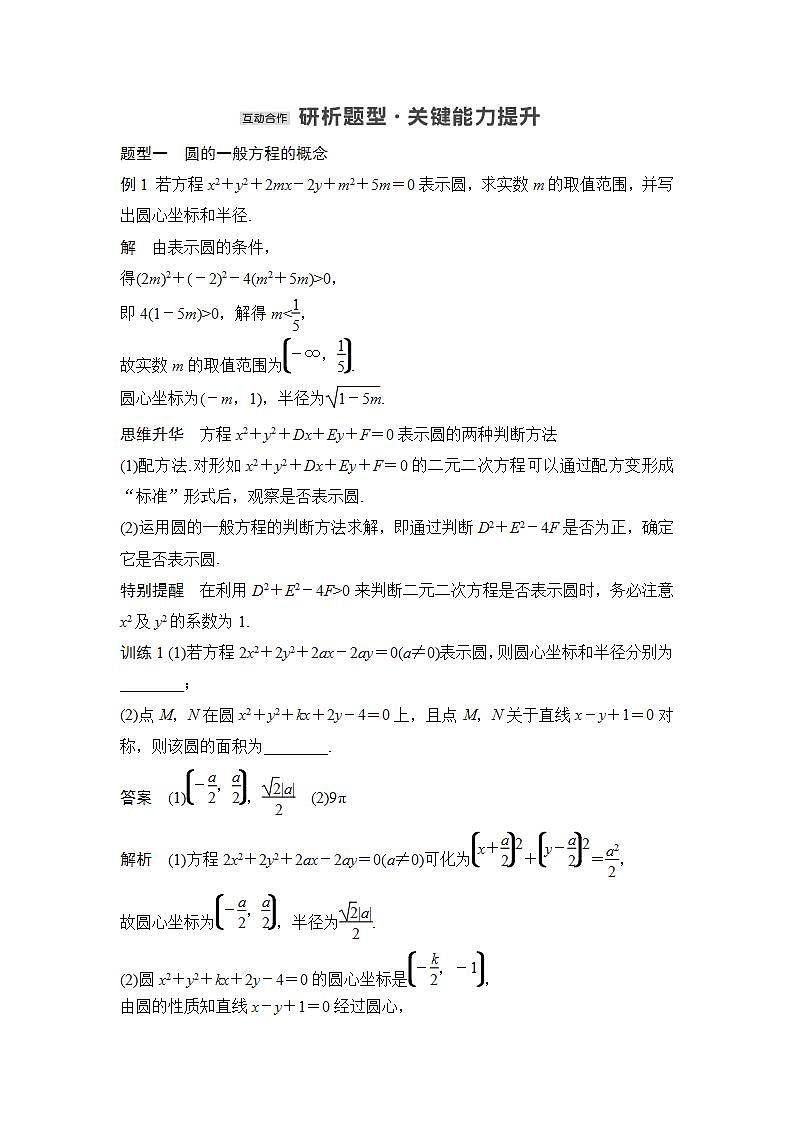 互动合作 研析题型·关键能力提升
题型一 圆的一般方程的概念
例1 若方程x²+y²+2mx-2y+m²+5m=0表示圆,求实数m的取值范围,并写
出圆心坐标和半径.
解 由表示圆的条件,
得(2m)²+(-2)²-4(m²+5m)>0,
即4(1-5m)>0,解得m<1/5,
故实数m的取值范围为(-∞,1/5).
圆心坐标为(-m,1),半径为√(1-5m).
思维升华 方程x²+y²+Dx+Ey+F=0表示圆的两种判断方法
(1)配方法.对形如x²+y²+Dx+Ey+F=0的二元二次方程可以通过配方变形成
“标准”形式后,观察是否表示圆.
(2)运用圆的一般方程的判断方法求解,即通过判断D²+E²-4F是否为正,确定
它是否表示圆.
特别提醒 在利用D²+E²-4F>0来判断二元二次方程是否表示圆时,务必注意
x²及y²的系数为1.
训练1 (1)若方程2x²+2y²+2ax-2ay=0(a≠0)表示圆,则圆心坐标和半径分别为
________;
(2)点M,N在圆x²+y²+kx+2y-4=0上,且点M,N关于直线x-y+1=0对
称,则该圆的面积为________.
答案 (1)(-a/2,a/2),√2|a|/2 (2)9π
解析 (1)方程2x²+2y²+2ax-2ay=0(a≠0)可化为(x+a/2)²+(y-a/2)²=a²/2,
故圆心坐标为(-a/2,a/2),半径为√2|a|/2.
(2)圆x²+y²+kx+2y-4=0的圆心坐标是(-k/2,-1),
由圆的性质知直线x-y+1=0经过圆心,